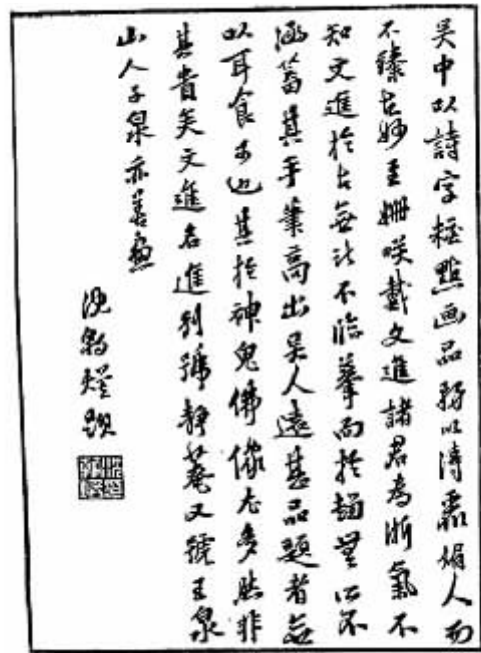 吴中以詩字粧點画品務以清麗媚人而
不臻古妙至姗咲戴文進諸君為浙氣不
知文進於古無法不臨摹而於趙無以不
涵蓄其手筆高出吴人遠甚品題者每
以耳食其於神鬼佛像尤多點非
其責矣文進名進別號靜菴又號玉泉
山人子泉亦善畫
沈顥題